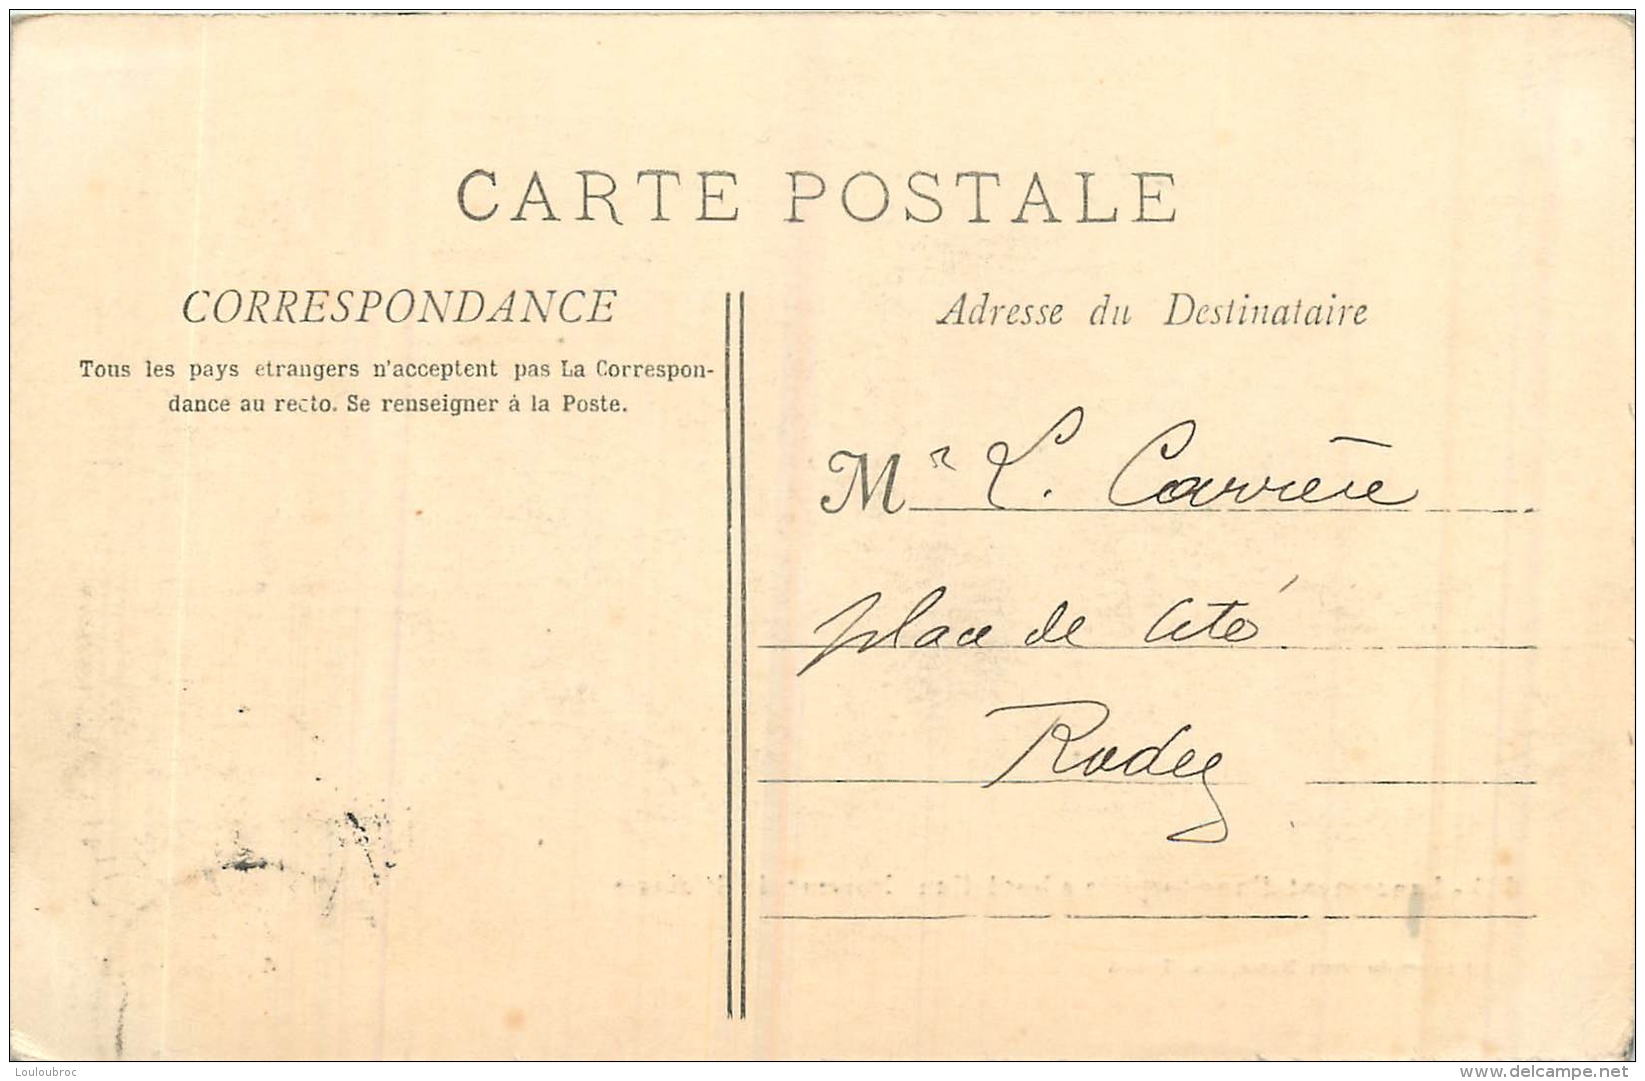 CARTE POSTALE
CORRESPONDANCE
Tous les pays etrangers n'acceptent pas La Correspon-
dance au recto. Se renseigner à la Poste.
Adresse du Destinataire
Mr L. Carrière
place de Cité
Rodez
Louloubroc
www.delcampe.net